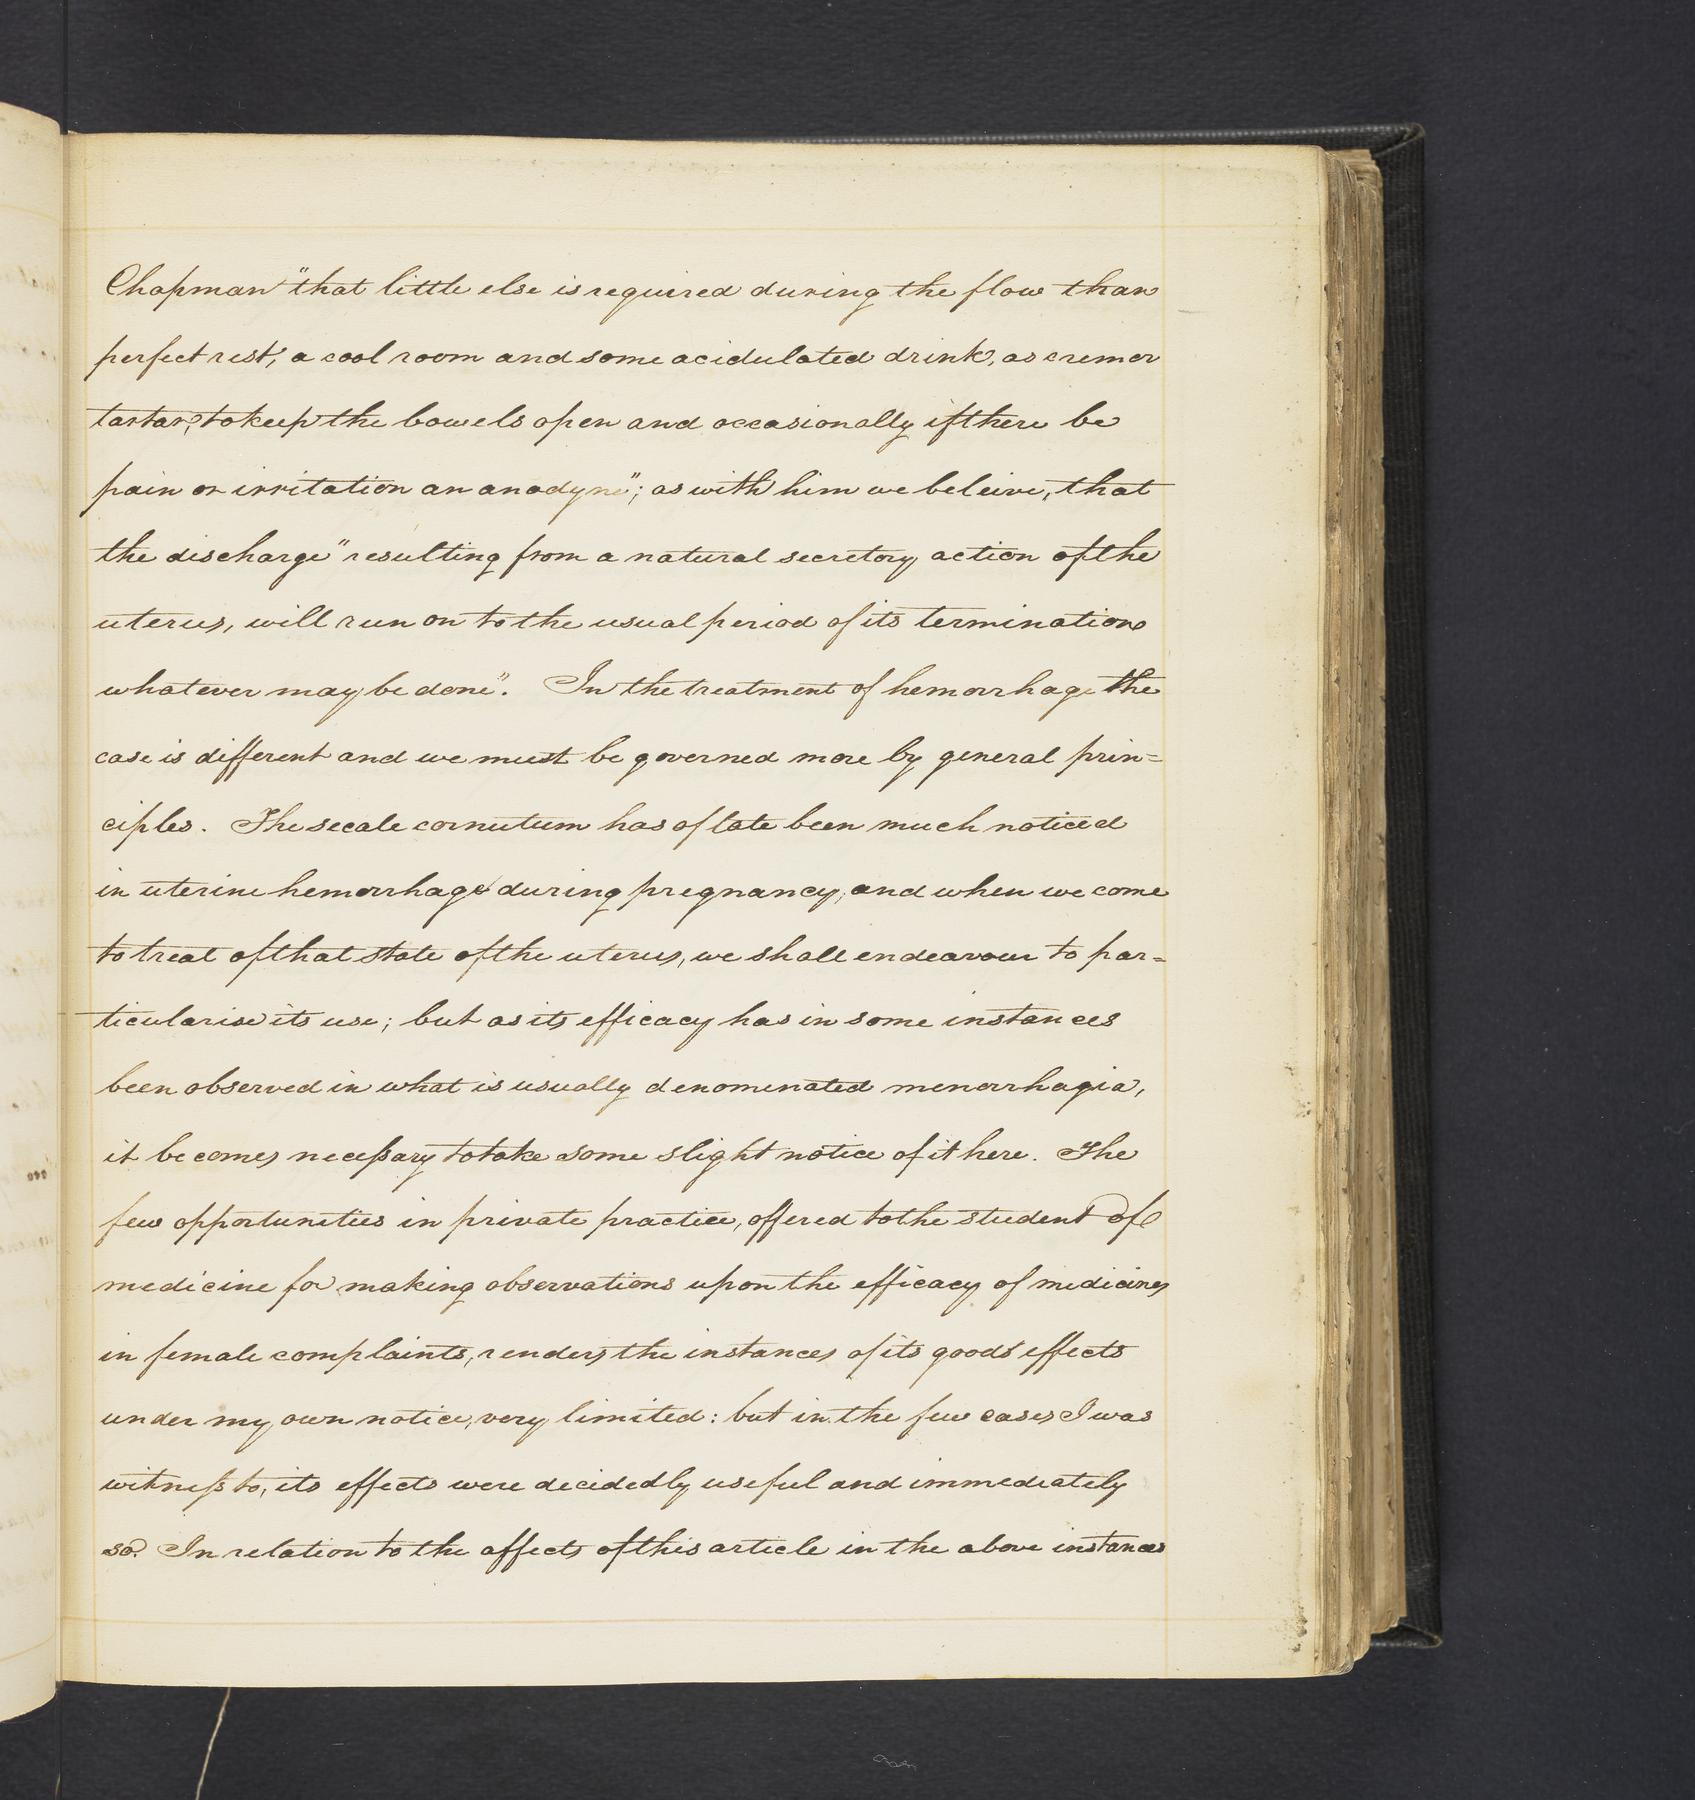 Chapman "that little else is required during the flow than
perfect rest, a cool room and some acidulated drink, as cremor
tartar, to keep the bowels open and occasionally if there be
pain or irritation an anodyne"; as with him we beleive, that
the discharge "resulting from a natural secretory action of the
uterus, will run on to the usual period of its termination
whatever may be done". In the treatment of hemorrhage the
case is different and we must be governed more by general prin=
ciples. The secale cornutum has of late been much noticed
in uterine hemorrhage during pregnancy, and when we come
to treat of that state of the uterus, we shall endeavour to par=
ticularise its use; but as its efficacy has in some instances
been observed in what is usually denominated menorrhagia,
it becomes necessary to take some slight notice of it here. The
few opportunities in private practice, offered to the student of
medicine for making observations upon the efficacy of medicines
in female complaints, renders the instances of its good effects
under my own notice, very limited: but in the few cases I was
witness to, its effects were decidedly useful and immediately
so. In relation to the affects of this article in the above instances